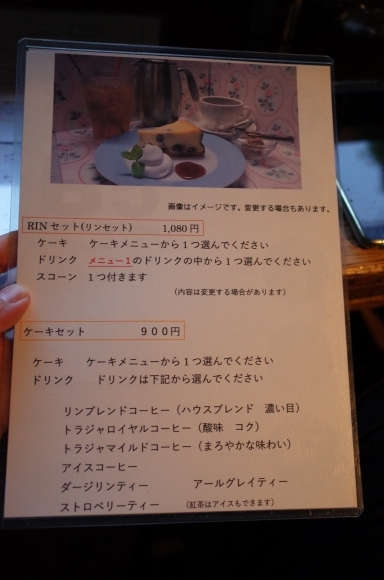 画像はイメージです。変更する場合もあります。
RIN セット(リンセット) 1,080 円
ケーキ ケーキメニューから1つ選んでください
ドリンク メニュー1のドリンクの中から1つ選んでください
スコーン 1つ付きます
(内容は変更する場合があります)
ケーキセット 900円
ケーキ ケーキメニューから1つ選んでください
ドリンク ドリンクは下記から1つ選んでください
リンブレンドコーヒー(ハウスブレンド 濃い目)
トラジャロイヤルコーヒー(酸味 コク)
トラジャマイルドコーヒー(まろやかな味わい)
アイスコーヒー
ダージリンティー アールグレイティー
ストロベリーティー (紅茶はアイスもできます)